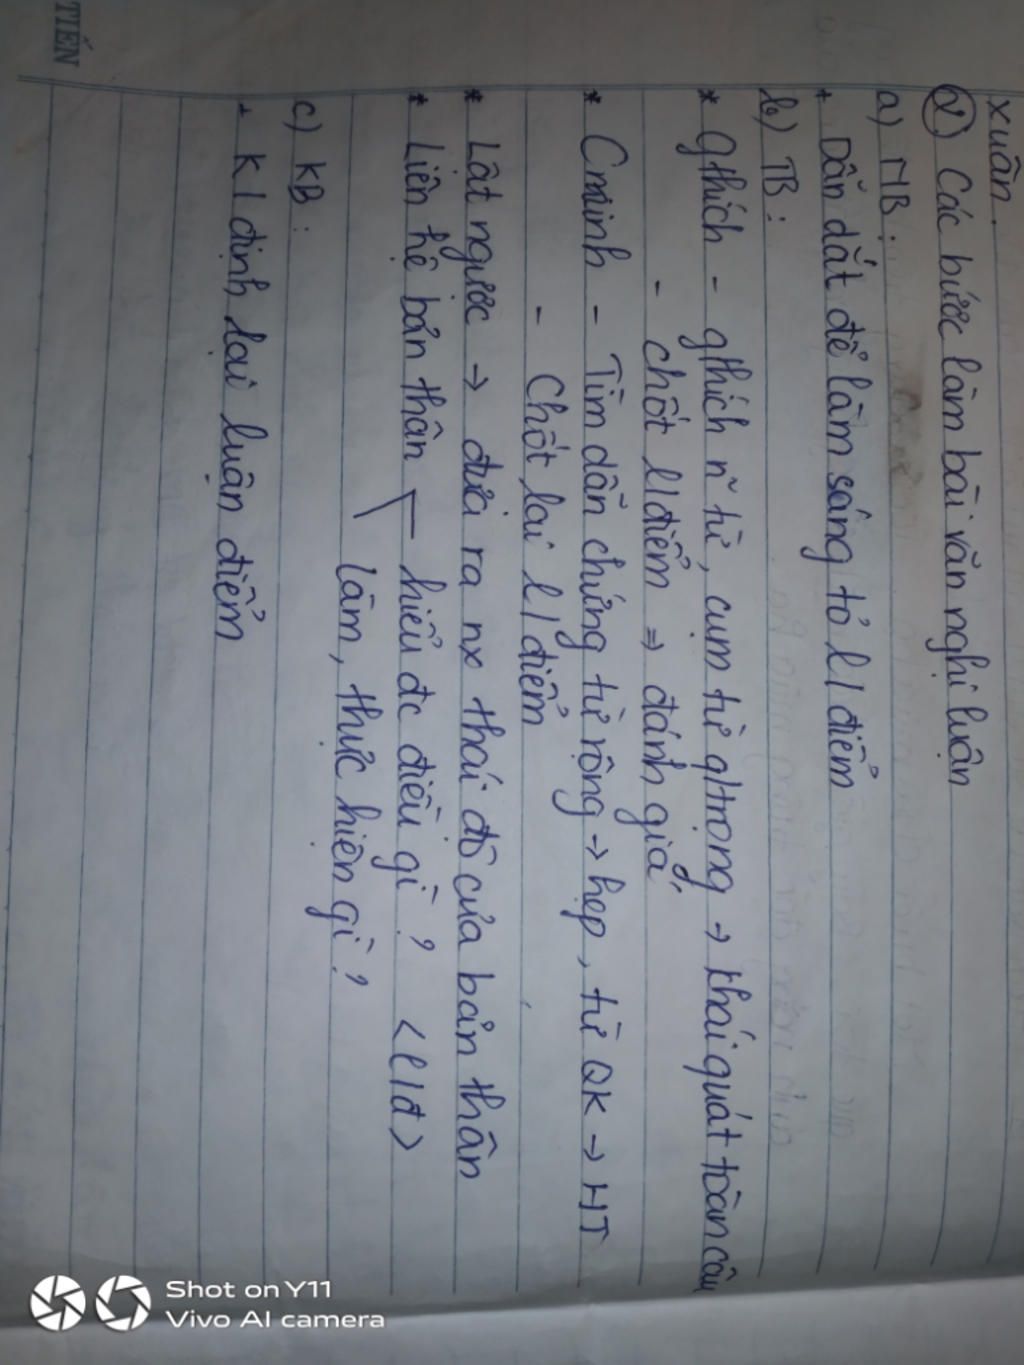 xuân.
② Các bước làm bài văn nghị luận
a) MB:
+ Dẫn dắt để làm sáng tỏ l/điểm
b) TB:
* Gthích - gthích n~ từ, cụm từ q/trọng → khái quát toàn câu
- chốt l/điểm ⇒ đánh giá
* Cminh - Tìm dẫn chứng từ rộng → hẹp, từ QK → HT
- Chốt lại l/điểm
* Lật ngược → đưa ra nx thái độ của bản thân
* Liên hệ bản thân - hiểu đc điều gì? <l/đ>
làm, thực hiện gì?
c) KB:
+ K/định lại luận điểm
TIẾN
Shot on Y11
Vivo AI camera